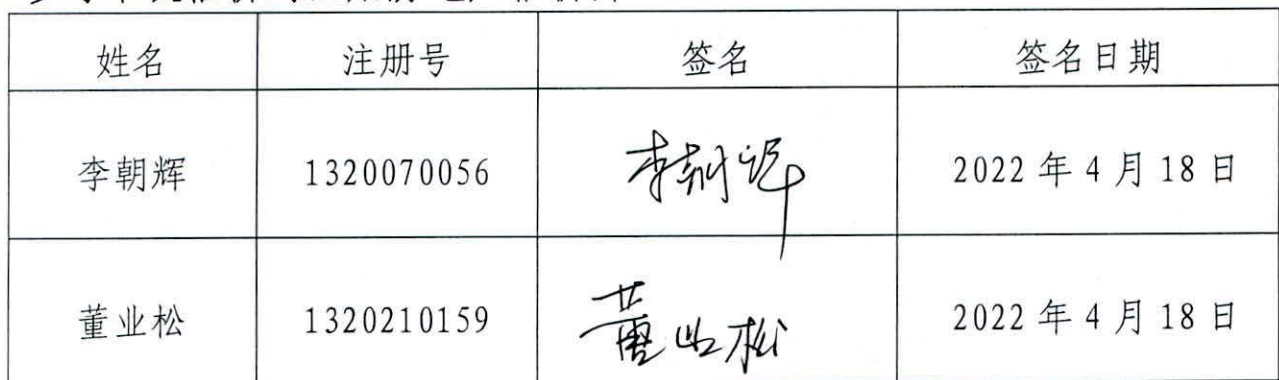 姓名 注册号 签名 签名日期
李朝辉 1320070056 李朝辉 2022 年 4 月 18 日
董业松 1320210159 董业松 2022 年 4 月 18 日